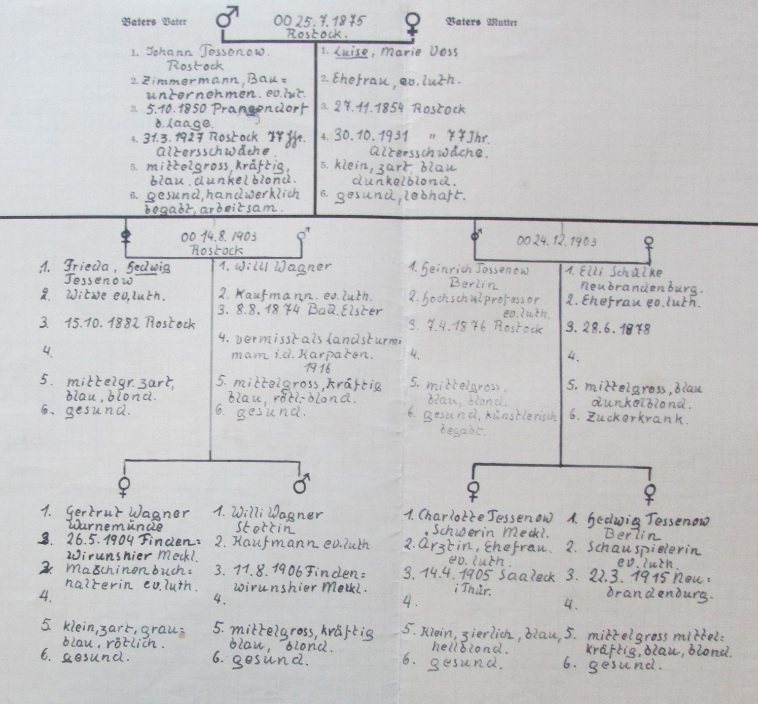 Vaters Vater
OO 25.7.1875
Rostock.
Vaters Mutter
1. Johann Tessenow.
Rostock
2. Zimmermann, Bau=
unternehmen. ev.lut.
3. 5.10.1850 Prangendorf
b. Laage.
4. 31.3.1927 Rostock 77 Jr.
Altersschwäche.
5. mittelgross, kräftig,
blau, dunkelblond.
6. gesund, handwerklich
begabt, arbeitsam.
1. Luise, Marie Voss
2. Ehefrau, ev. luth.
3. 27.11.1854 Rostock
4. 30.10.1931 " 77 Jhr.
Altersschwäche.
5. klein, zart, blau
dunkelblond.
6. gesund, lebhaft.
OO 14.8.1903
Rostock
1. Frieda, Hedwig
Tessenow
2. Witwe ev. luth.
3. 15.10.1882 Rostock
4.
5. mittelgr. zart,
blau, blond.
6. gesund.
1. Willi Wagner
2. Kaufmann. ev. luth.
3. 8.8.1874 Bad. Elster
4. vermisst als Landsturm
mam i.d. Karpaten.
1916
5. mittelgross, kräftig
blau, rötl.-blond.
6. gesund.
OO 24.12.1903
1. Heinrich Tessenow
Berlin
2. Hochschulprofessor
ev. luth.
3. 7.4.1876 Rostock
4.
5. mittelgross,
blau, blond.
6. gesund, künstlerisch
begabt.
1. Elli Schülke
Neubrandenburg.
2. Ehefrau ev. luth.
3. 28.6.1878
4.
5. mittelgross, blau
dunkelblond.
6. Zuckerkrank.
1. Gertrut Wagner
Warnemünde
3. 26.5.1904 Finden=
wirunshier Meckl.
2. Maschinenbuch=
halterin ev. luth.
4.
5. klein, zart, grau=
blau, rötlich.
6. gesund.
1. Willi Wagner
Stettin
2. Kaufmann ev. luth
3. 11.8.1906 Finden=
wirunshier Meckl.
4.
5. mittelgross, kräftig
blau, blond.
6. gesund.
1. Charlotte Tessenow
Schwerin Meckl.
2. Ärztin, Ehefrau.
ev. luth.
3. 14.4.1905 Saaleck
i Thür.
4.
5. Klein, zierlich, blau,
hellblond.
6. gesund.
1. Hedwig Tessenow
Berlin
2. Schauspielerin
ev. luth.
3. 22.3.1915 Neu=
brandenburg.
4.
5. mittelgross mittel=
kräftig, blau, blond.
6. gesund.